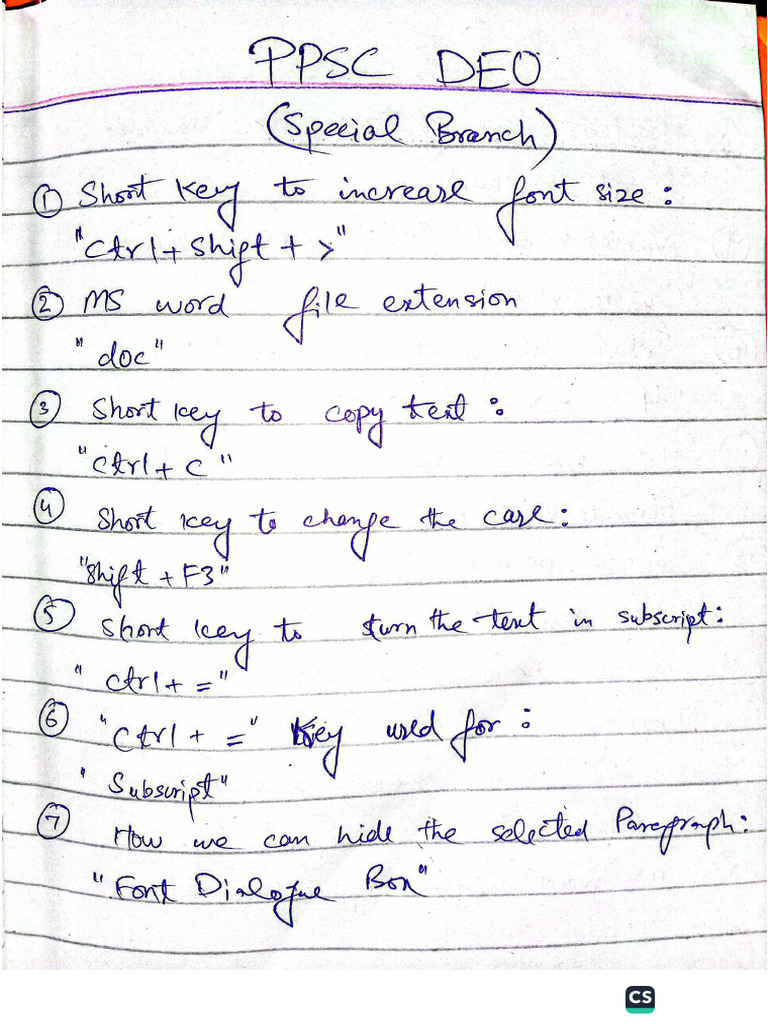 PPSC DEO
(Special Branch)
① Short key to increase font size:
"Ctrl + Shift + >"
② MS word file extension
"doc"
③ Short key to copy text:
"Ctrl + C"
④ Short key to change the case:
"Shift + F3"
⑤ Short key to turn the text in subscript:
"Ctrl + ="
⑥ "Ctrl + =" Key used for:
"Subscript"
⑦ How we can hide the selected Paragraph:
"Font Dialogue Box"
CS